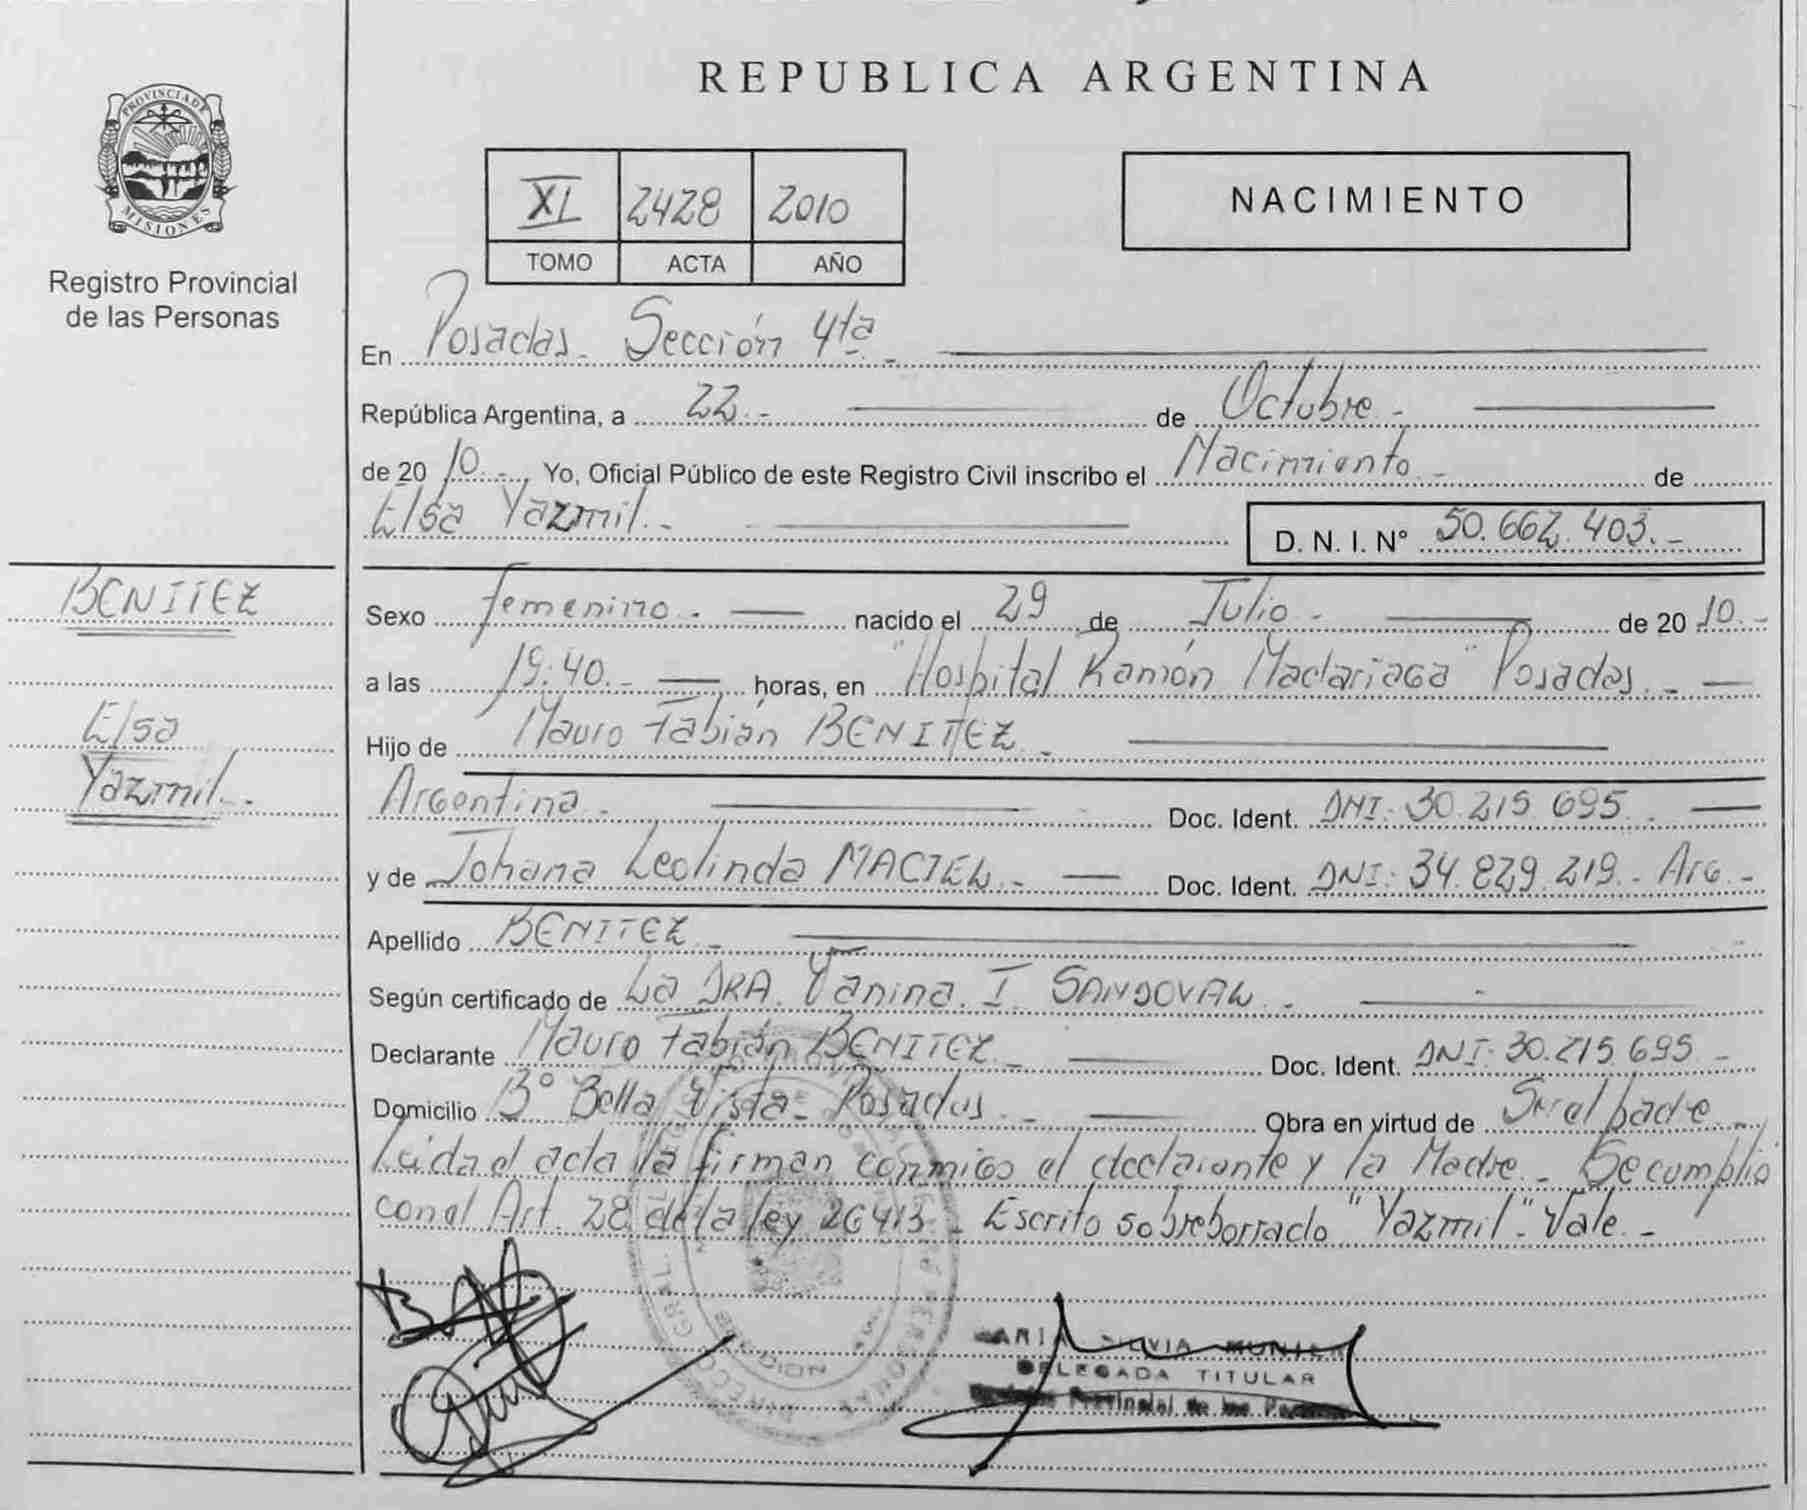 REPUBLICA ARGENTINA
PROVINCIA DE
MISIONES
Registro Provincial
de las Personas
XI 2428 2010
TOMO ACTA AÑO
NACIMIENTO
En Posadas. Sección 4ta.-
República Argentina, a 22.- de Octubre.-
de 20 10.- Yo, Oficial Público de este Registro Civil inscribo el Nacimiento.- de
Elsa Yazmil.- D. N. I. N° 50.662.403.-
BENITEZ
Elsa
Yazmil.-
Sexo femenino.- nacido el 29 de Julio.- de 20 10.-
a las 19:40.- horas, en "Hospital Ramón Madariaga" Posadas.-
Hijo de Mauro Fabián BENITEZ.-
Argentina.- Doc. Ident. DNI: 30.215.695.
y de Johana Leolinda MACIEL.- Doc. Ident. DNI: 34.829.219.- Arg.-
Apellido BENITEZ.-
Según certificado de La DRA. Yanina. I. SANDOVAL.-
Declarante Mauro Fabián BENITEZ.- Doc. Ident. DNI: 30.215.695.-
Domicilio B° Bella Vista- Posadas.- Obra en virtud de Ser el padre.-
Leida el acta la firman conmigo el declarante y la Madre.- Se cumplió
con el Art. 28 de la ley 26413.- Escrito sobreborrado "Yazmil".- Vale.-
SILVIA MUNIER
DELEGADA TITULAR
Provincial de las